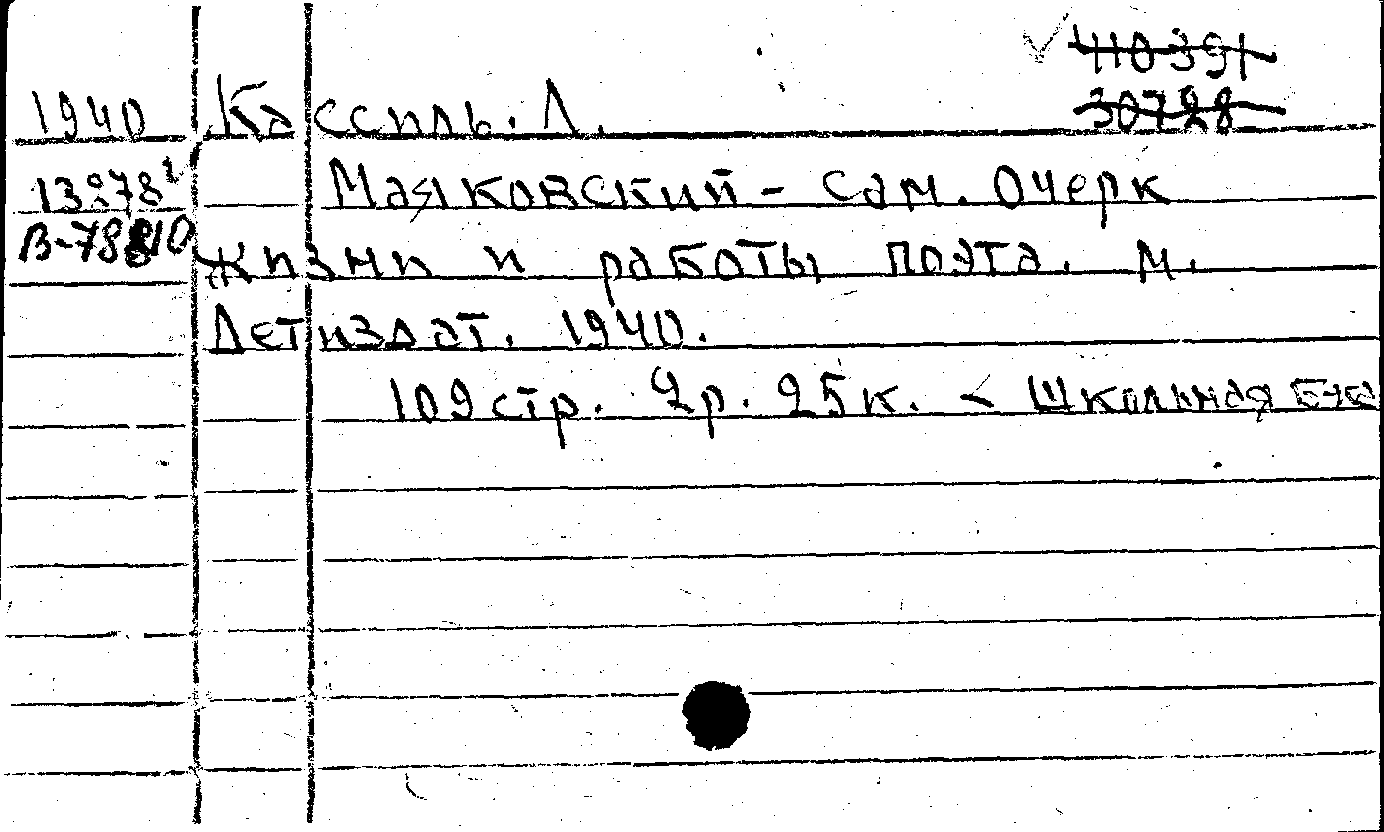 410391
30728
1940 Кассиль. Л.
Маяковский - сам. Очерк
жизни и работы поэта. М.
Детиздат. 1940.
109 стр. 2р. 25к. < Школьная б-ка